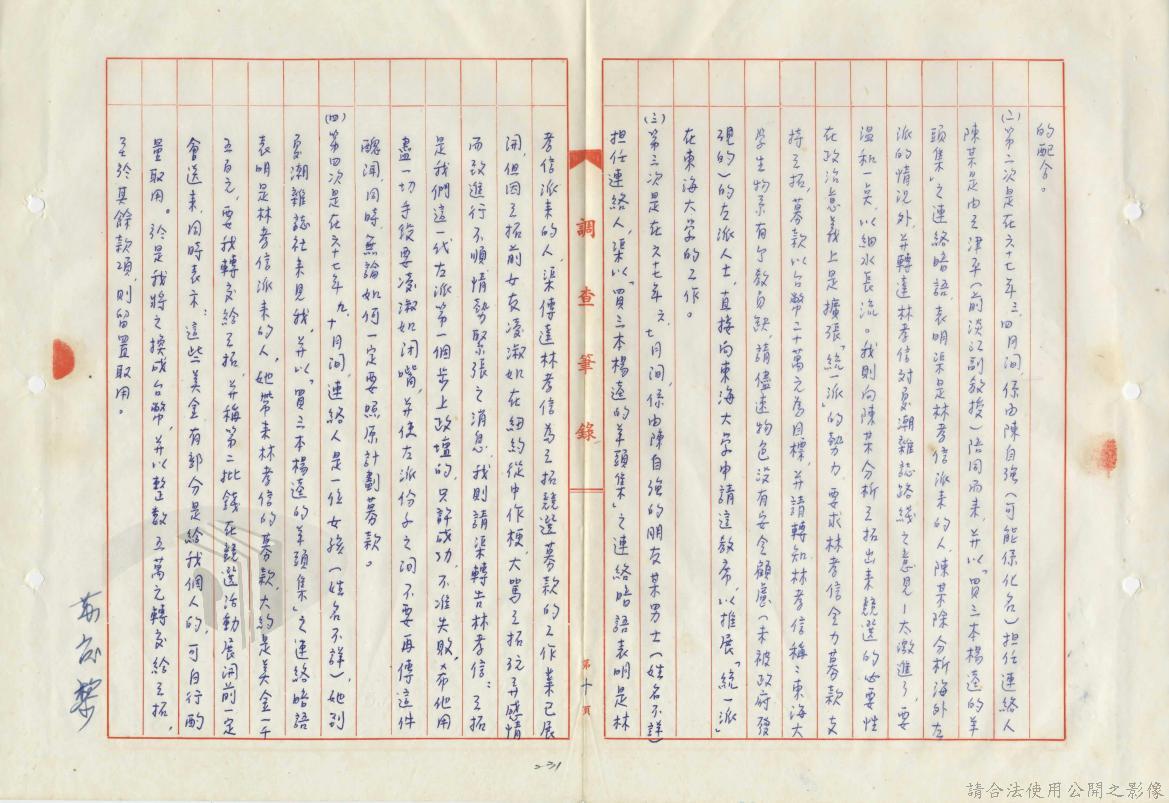 的配合。
(二)第二次是在六十七年三、四月間,係由陳自強(可能係化名)担任連絡人
陳某是由王津平(前淡江副教授)陪同而來,并以「買三本楊逵的羊
頭集」之連絡暗語,表明渠是林孝信派來的人,陳某除分析海外左
派的情況外,并轉達林孝信対夏潮雜誌路綫之意見—太激進了,要
温和一点,以細水長流。我則向陳某分析王拓出來競選的必要性
在政治意義上是擴張「統一派」的勢力,要求林孝信全力募款支
持王拓,募款以台幣二十萬元為目標,并請轉知林孝信稱:東海大
学生物系有个教員缺,請儘速物色没有安全顧慮(未被政府發
現的)的左派人士,直接向東海大学申請這教席,以推展「統一派」
在東海大学的工作。
(三)第三次是在六十七年六、七月間,係由陳自強的朋友某男士(姓名不詳)
担任連絡人,渠以「買三本楊逵的羊頭集」之連絡暗語表明是林
調查筆錄
第十頁
孝信派来的人,渠傳達林孝信為王拓競選募款的工作業已展
開,但因王拓前女友凌淑如在紐約從中作梗,大罵王拓玩弄感情
而致進行不順情勢緊張之消息,我則請渠轉告林孝信:王拓
是我們這一代左派第一個步上政壇的,只許成功,不准失敗,希他用
盡一切手段要凌淑如閉嘴,并使左派份子之间不要再傳這件
醜聞,同時,無論如何一定要照原計劃募款。
(四)第四次是在六十七年九、十月間,連絡人是一位女孩(姓名不詳),她到
夏潮雜誌社來見我,并以「買三本楊逵的羊頭集」之連絡暗語
表明是林孝信派来的人,她帶来林孝信的募款,大約是美金一千
五百元,要我轉交給王拓,并稱第二批錢在競選活動展開前一定
會送来,同時表示:這些美金有部分是給我個人的,可自行酌
量取用。於是我將之換成台幣,并以整數五萬元轉交給王拓,
至於其餘款項,則留置取用。
蘇慶黎
231
請合法使用公開之影像